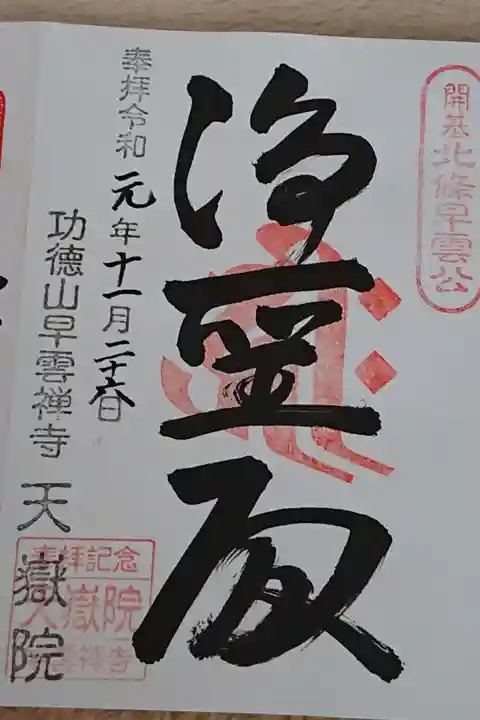 開基北條早雲公
浄
奉拝令和元年十一月二十六日
功徳山早雲禅寺天嶽院
奉拝記念
天嶽院
早雲禅寺